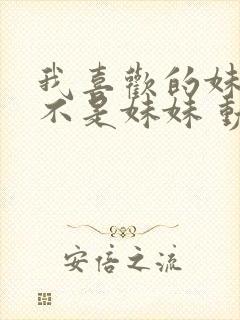 我喜歡的妹
不是妹妹 動
安倍之流